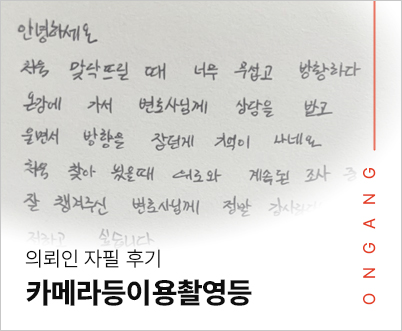 안녕하세요
처음 맞닥뜨릴 때 너무 무섭고 방황하다
온강에 가서 변호사님께 상담을 받고
울면서 방향을 잡던게 기억이 나네요
처음 찾아 뵀을때 위로와 계속된 조사
잘 챙겨주신 변호사님께 정말
전하고 싶습니다
의뢰인 자필 후기
카메라등이용촬영등
ONGANG